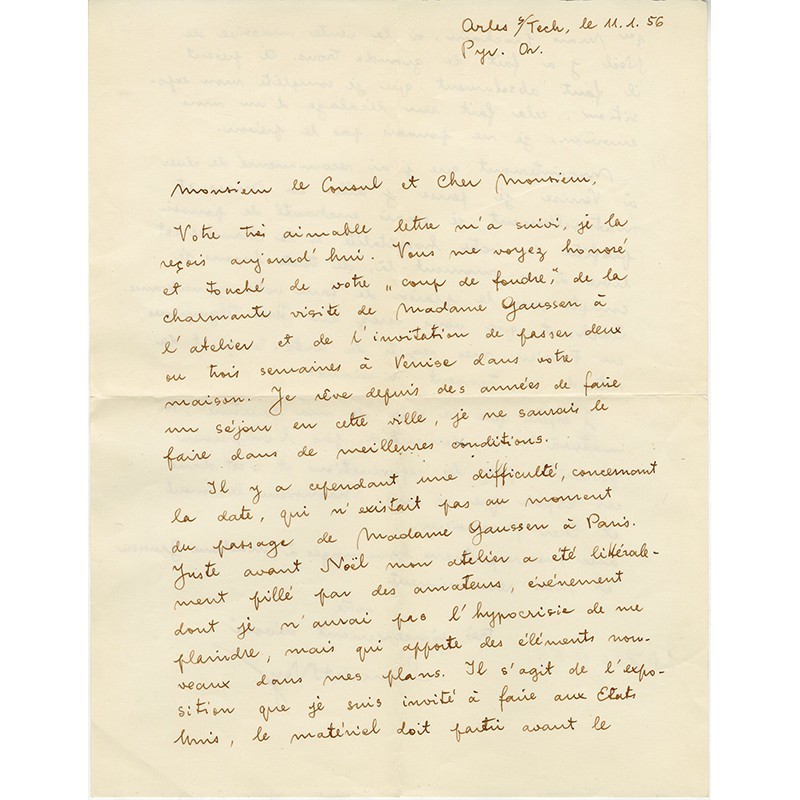 Arles s/Tech, le 11.1.56
Pyr. Or.
Monsieur le Consul et Cher Monsieur,
Votre très aimable lettre m'a suivi, je la
reçois aujourd'hui. Vous me voyez honoré
et touché de votre „coup de foudre", de la
charmante visite de Madame Gaussen à
l'atelier et de l'invitation de passer deux
ou trois semaines à Venise dans votre
maison. Je rêve depuis des années de faire
un séjour en cette ville, je ne saurais le
faire dans de meilleures conditions.
Il y a cependant une difficulté, concernant
la date, qui n'existait pas au moment
du passage de Madame Gaussen à Paris.
Juste avant Noël mon atelier a été littérale-
ment pillé par des amateurs, événement
dont je n'aurai pas l'hypocrisie de me
plaindre, mais qui apporte des éléments nou-
veaux dans mes plans. Il s'agit de l'expo-
sition que je suis invité à faire aux Etats
Unis, le matériel doit partir avant le